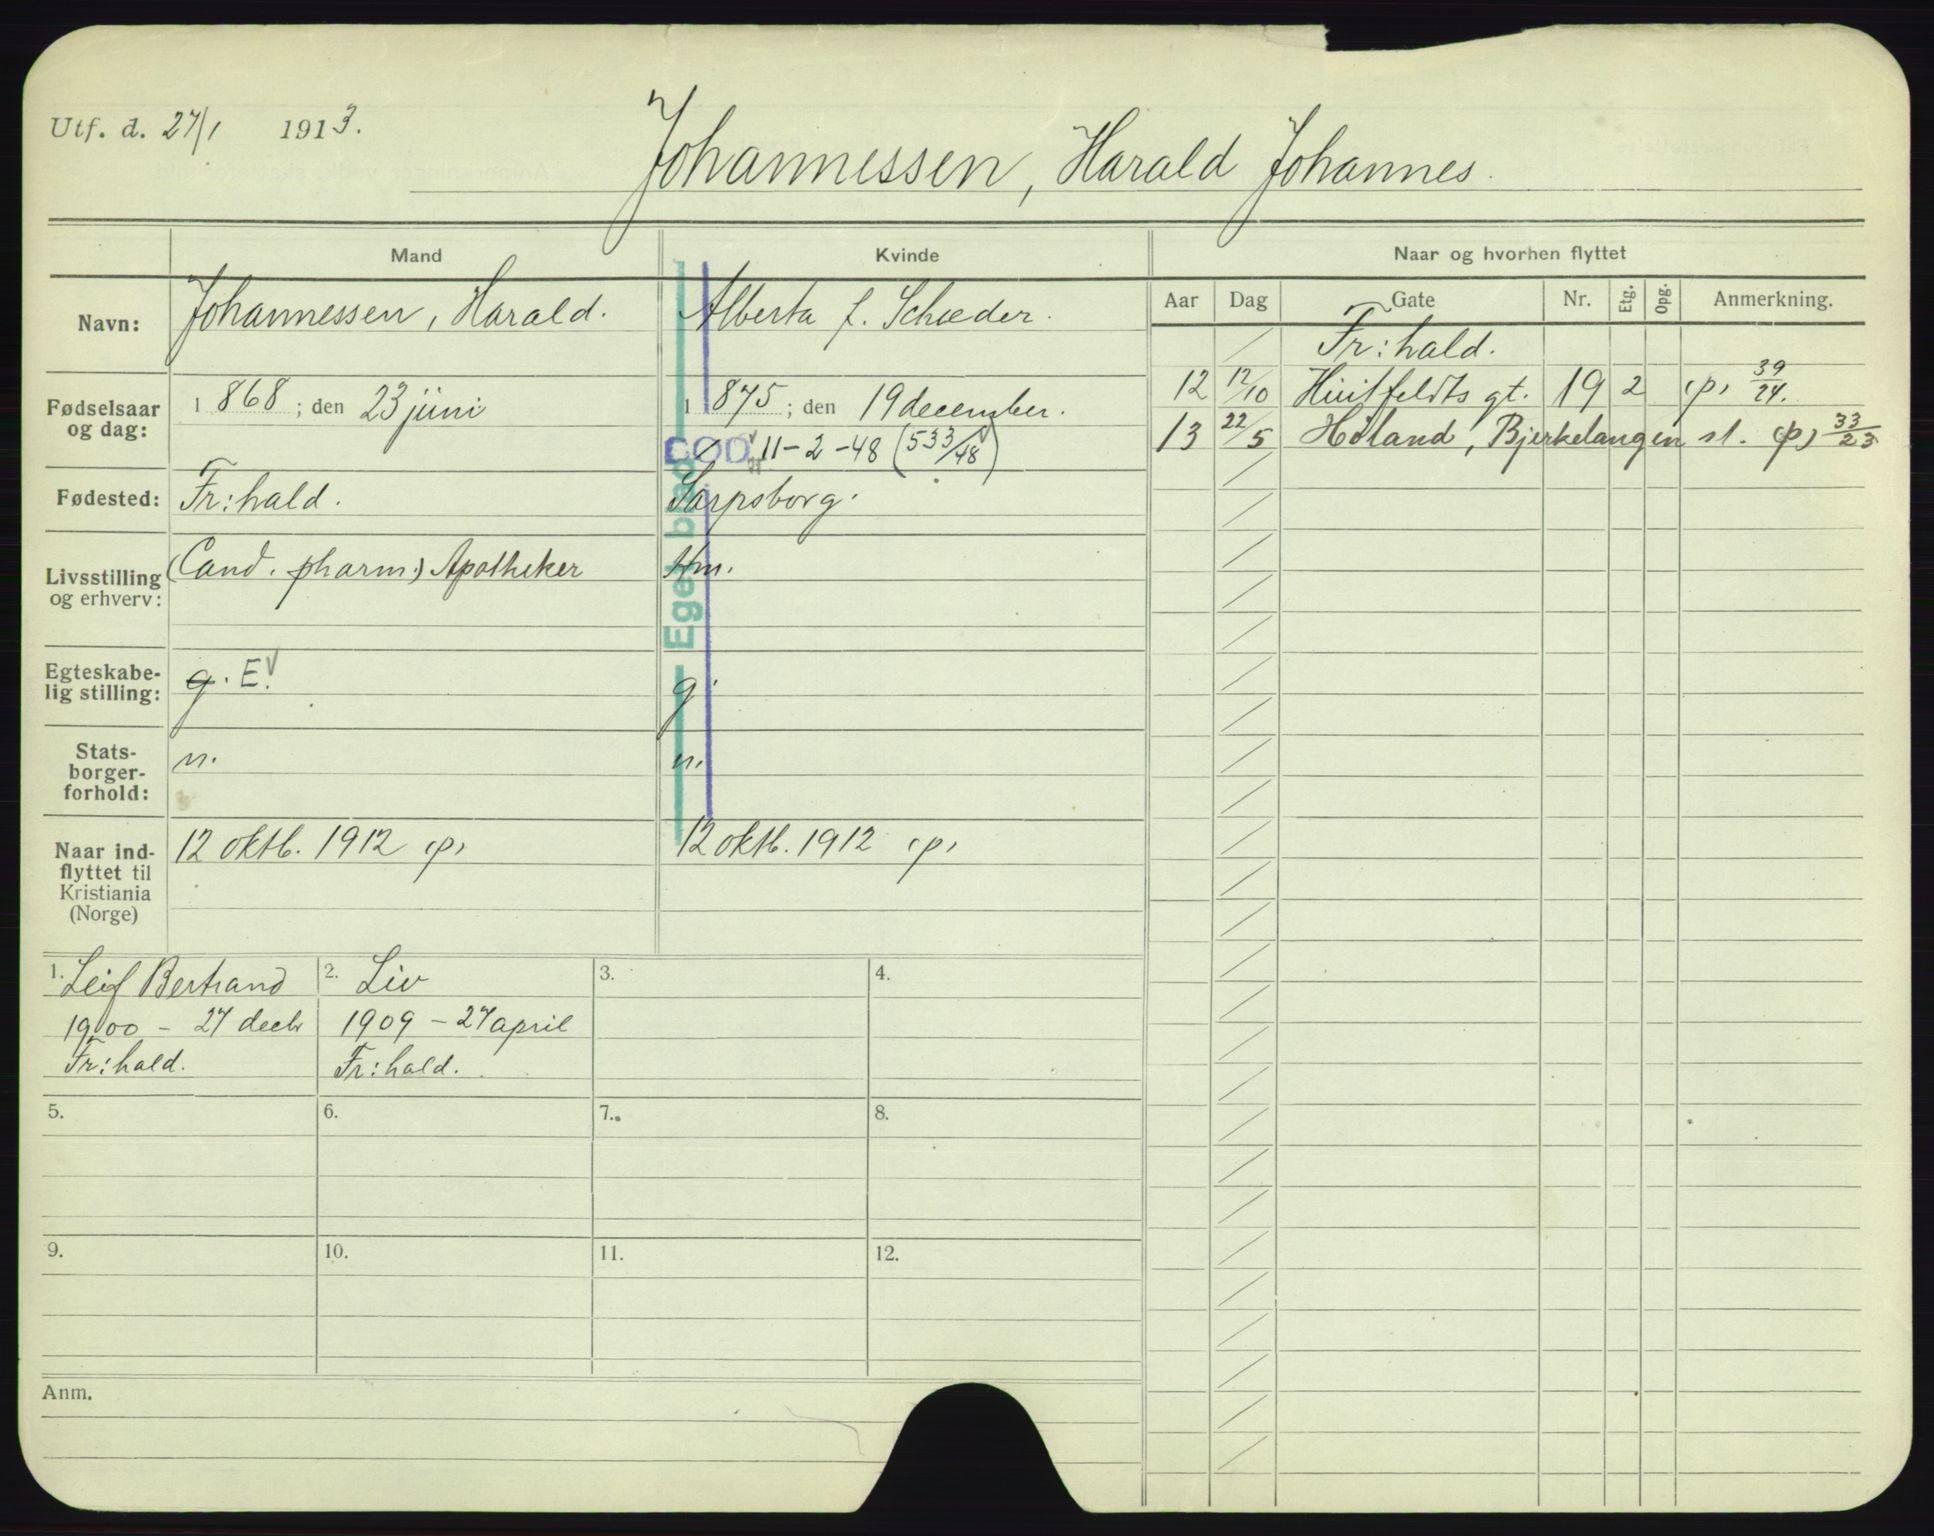 Utf. d. 27/1 1913.
Johannessen, Harald Johannes.
Mand
Kvinde
Naar og hvorhen flyttet
Navn:
Johannessen, Harald.
Alberta f. Schæder.
Aar Dag Gate Nr. Etg. Opg. Anmerkning.
Fr:hald.
12 12/10 Huitfeldts gt. 19 2 (p) 39/24.
13 22/5 Høland, Bjerkelangen st. (p) 33/23
Fødselsaar
og dag:
1868; den 23 juni
1875; den 19 december.
DØD 11-2-48 (533/48)
Fødested:
Fr:hald.
Sarpsborg.
Livsstilling
og erhverv:
(Cand. pharm.) Apotheker
Hm.
Eget blad
Egteskabe-
lig stilling:
g. E.
g.
Stats-
borger-
forhold:
n.
n.
Naar ind-
flyttet til
Kristiania
(Norge)
12 oktb. 1912 (p)
12 oktb. 1912 (p)
1. Leif Bertrand
1900 - 27 decbr
Fr:hald.
2. Liv
1909 - 27 april
Fr:hald.
3.
4.
5.
6.
7.
8.
9.
10.
11.
12.
Anm.